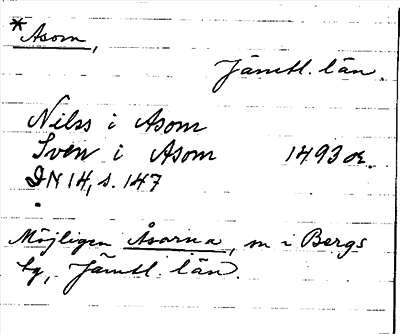 *Asom,
Jämtl. län.
Nilss i Asom
Sven i Asom 1493
DN 14, s. 147
Möjligen Åsarna, sn i Bergs
tg, Jämtl. län.